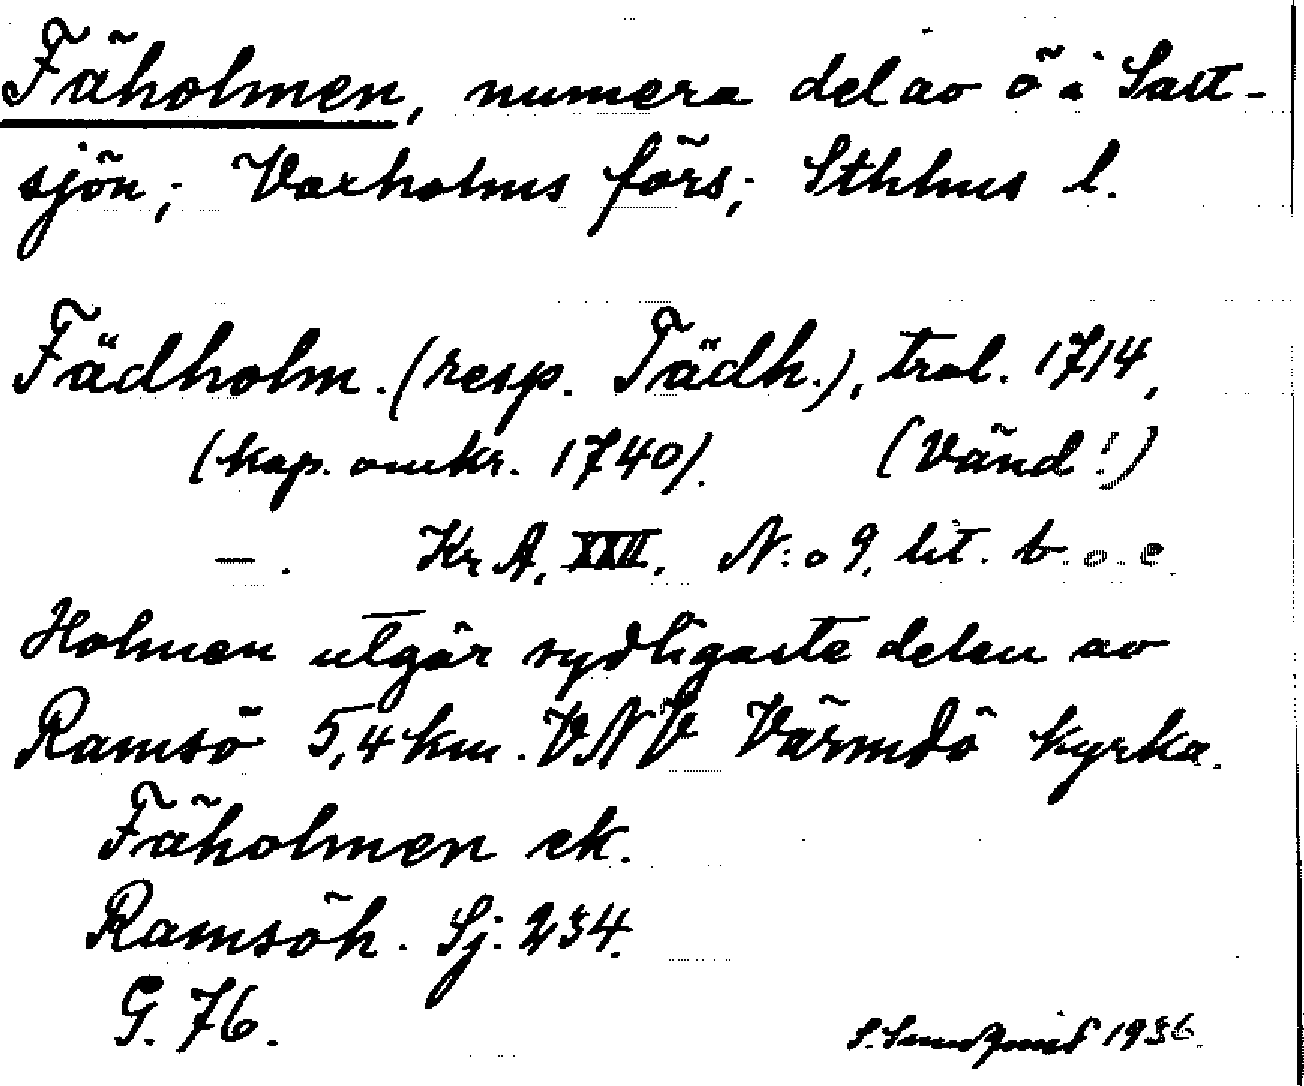 Fäholmen, numera del av ö i Salt-
sjön; Vaxholms förs; Sthlms l.
Fädholm. (resp. Tädh.), trol. 1714,
(kop. omkr. 1740). (Vänd!)
— . Kr A, XXII. N:o 9, lit. b o. e
Holmen utgör sydligaste delen av
Ramsö 5,4 km. VNV Värmdö kyrka.
Fäholmen ek.
Ramsöh. Sj. 234.
G. 76.
S. Sundquist 1936